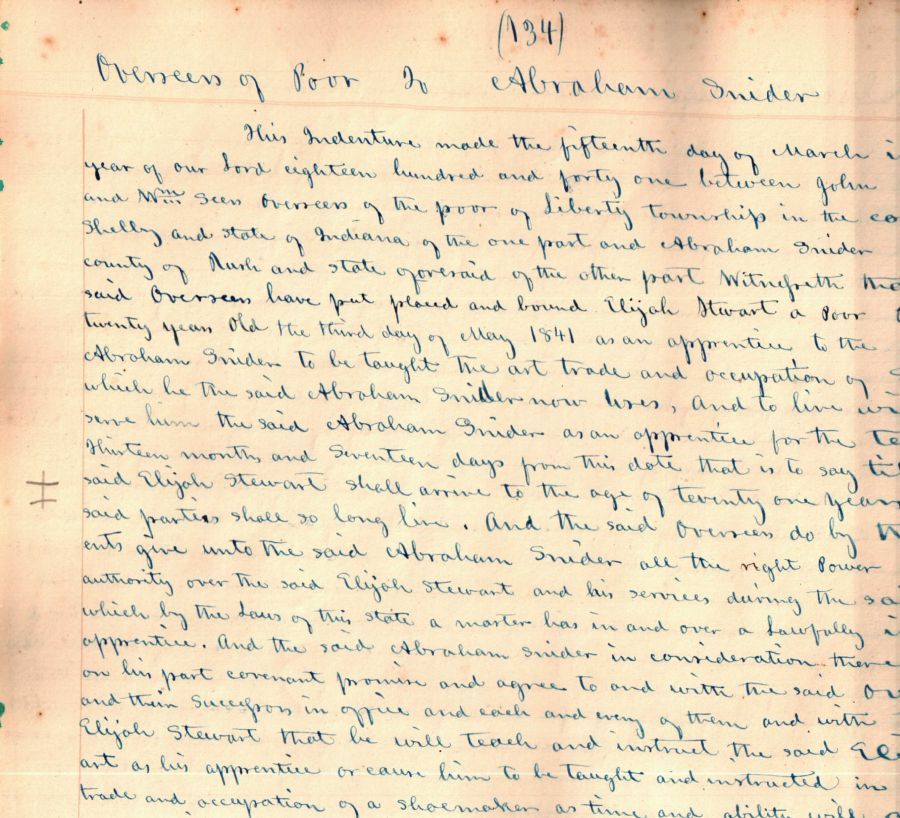 (134)
Overseers of Poor To Abraham Snider
This Indenture made the fifteenth day of March
year of our Lord eighteen hundred and forty one between John
and Wm Sees Overseers of the poor of Liberty township in the co
Shelby and state of Indiana of the one part and Abraham Snider
county of Rush and state aforesaid of the other part Witnesseth tha
said Overseers have put placed and bound Elijah Stwart a Poor
twenty years Old the third day of May 1841 as an apprentice to the
Abraham Snider to be taught the art trade and occupation of S
which he the said Abraham Snider now lives, and to live wi
serve him the said Abraham Snider as an apprentice for the te
Thirteen months and Seventeen days from this date that is to say til
said Elijah Stewart shall arrive to the age of twenty one years
said parties shall so long live. And the said Overseers do by th
ents give unto the said Abraham Snider all the right Power
authority over the said Elijah Stewart and his services during the sa
which by the Laws of this state a master has in and over a Lawfully i
apprentice. And the said Abraham Snider in consideration there
on his part covenant promise and agree to and with the said Ov
and their Successors in office and each and every of them and with
Elijah Stewart that he will teach and instruct the said Eli
art as his apprentice or cause him to be taught and instructed in
trade and occupation of a shoemaker as time and ability will